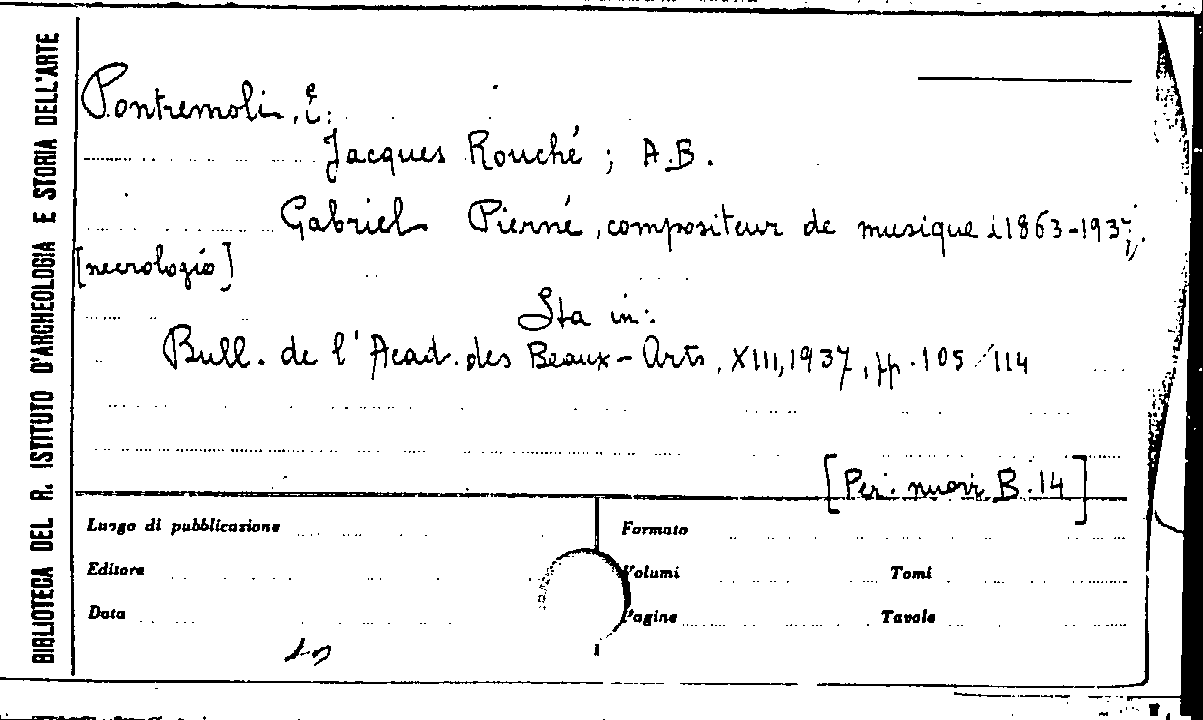 BIBLIOTECA DEL R. ISTITUTO D'ARCHEOLOGIA E STORIA DELL'ARTE
Pontremoli, E:
Jacques Rouché ; A.B.
Gabriel Pierné, compositeur de musique 1863-1937,
[necrologio]
Sta in:
Bull. de l'Acad. des Beaux-Arts, XIII, 1937, pp. 105/114
[Per. nuovi B.14]
Luogo di pubblicazione
Formato
Editore
Volumi
Tomi
Data
Pagine
Tavole